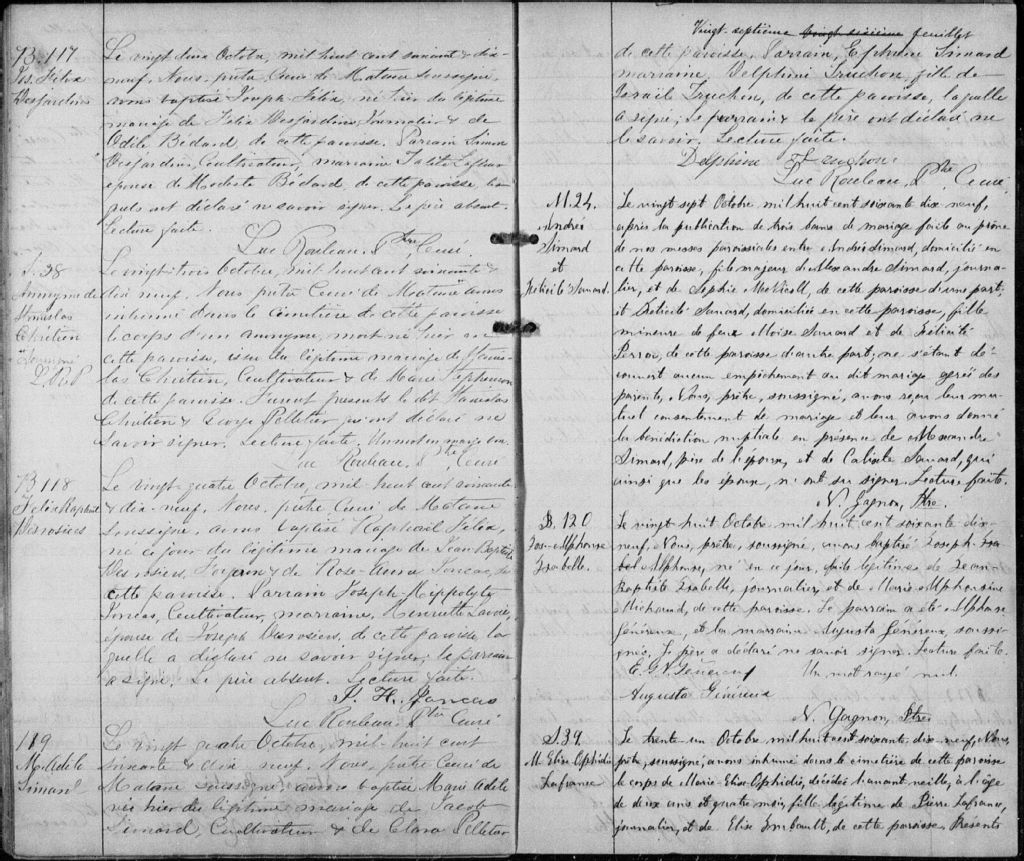 B. 117
Jos. Félix
Desjardins
Le vingt deux Octobre, mil huit cent soixante & dix-
neuf. Nous, prêtre Curé de Matane soussigné,
avons baptisé Joseph-Félix, né hier du légitime
mariage de Félix Desjardins, Journalier & de
Odile Bédard de cette paroisse. Parrain Simon
Desjardins, Cultivateur, marraine
épouse de Modeste Bédard, de cette paroisse, les-
quels ont déclaré ne savoir signer. Le père absent.
Lecture faite.
Luc Rouleau, Ptre, Curé.
S. 38
Anonyme de
Stanislas
Chrétien
Le vingt trois Octobre, mil huit cent soixante &
dix neuf. Nous, prêtre Curé de Matane avons
inhumé dans le cimetière de cette paroisse
le corps d'un anonyme, mort-né hier en
cette paroisse, issu du légitime mariage de Stanis-
las Chrétien, Cultivateur & de Marie Stephenson
de cette paroisse. Furent présents le dit Stanislas
Chrétien & George Pelletier qui ont déclaré ne
savoir signer. Lecture faite. Un mot en marge bon.
Luc Rouleau, Ptre, Curé
B 118
Félix Raphaël
Desrosiers
Le vingt quatre Octobre, mil-huit cent soixante
& dix-neuf. Nous, prêtre Curé de Matane
soussigné, avons baptisé Raphaël Félix,
né ce jour du légitime mariage de Jean Baptiste
Desrosiers, & de Rose-Anna de
cette paroisse. Parrain Joseph-Hippolyte
Cultivateur, marraine, Henriette Lavoie,
épouse de Joseph Desrosiers, de cette paroisse, la-
quelle a déclaré ne savoir signer; le parrain
a signé. Le père absent. Lecture faite.
J. H.
Luc Rouleau Ptre Curé
119
M. Adèle
Simard
Le vingt quatre Octobre, mil-huit cent
soixante & dix-neuf. Nous, prêtre Curé de
Matane soussigné avons baptisé Marie Adèle
née hier du légitime mariage de Jacob
Simard, Cultivateur & de Clara Pelletier
Vingt-septième vingt sixième feuillet
de cette paroisse. Parrain, Ephrem Simard
marraine, Delphine Truchon, fille de
Israël Truchon, de cette paroisse, laquelle
a signé; le parrain & le père ont déclaré ne
le savoir. Lecture faite.
Delphine Truchon
Luc Rouleau, Ptre Curé
M. 24.
André
Simard
et
Félicité Savard.
Le vingt sept Octobre mil huit cent soixante dix neuf,
après la publication de trois bans de mariage faite au prône
de nos messes paroissiales entre André Simard, domicilié en
cette paroisse, fils majeur d'Alexandre Simard, journa-
lier, et de Sophie McNicoll, de cette paroisse d'une part;
et Félicité Savard, domiciliée en cette paroisse, fille
mineure de feu Moïse Savard et de Félicité
Perron, de cette paroisse d'autre part; ne s'étant dé-
couvert aucun empêchement au dit mariage agréé des
parents, Nous, prêtre, soussigné, avons reçu leur mu-
tuel consentement de mariage et leur avons donné
la bénédiction nuptiale en présence de Alexandre
Simard, père de l'époux, et de Calixte Savard, qui
ainsi que les époux, n'ont su signer. Lecture faite.
N. Gagnon, Ptre.
B. 120
Jos. Alphonse
Isabelle.
Le vingt huit Octobre mil huit cent soixante dix-
neuf, Nous, prêtre, soussigné, avons baptisé Joseph
Alphonse, né en ce jour, fils légitime de Jean
Baptiste Isabelle, journalier, et de Marie Alphonsine
Michaud, de cette paroisse. Le parrain a été Alphonse
Généreux, et la marraine Augusta Généreux, soussi-
gnés, le père a déclaré ne savoir signer. Lecture faite.
Un mot rayé nul.
Augusta Généreux
N. Gagnon, Ptre
S. 39.
M. Elise Ophidie
Lafrance
Le trente un Octobre mil huit cent soixante dix-neuf, Nous,
prêtre, soussigné, avons inhumé dans le cimetière de cette paroisse
le corps de Marie-Elise Ophidie, décédée l'avant veille, à l'âge
de deux ans et quatre mois, fille légitime de Pierre Lafrance,
journalier, et de Elise Imbault, de cette paroisse. Présents